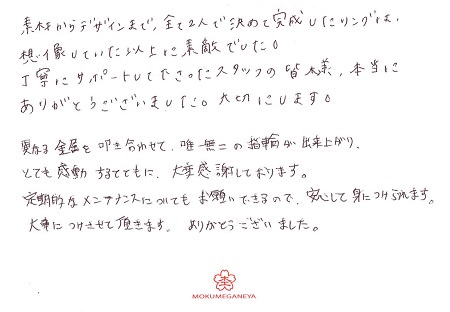 素材からデザインまで、全て2人で決めて完成したリングは、
想像していた以上に素敵でした。
丁寧にサポートしてくださったスタッフの皆様、本当に
ありがとうございました。大切にします。
異なる金属を叩き合わせて、唯一無二の指輪が出来上がり、
とても感動するとともに、大変感謝しております。
定期的なメンテナンスについてもお願いできるので、安心して身につけられます。
大事につけさせて頂きます。ありがとうございました。
MOKUMEGANEYA